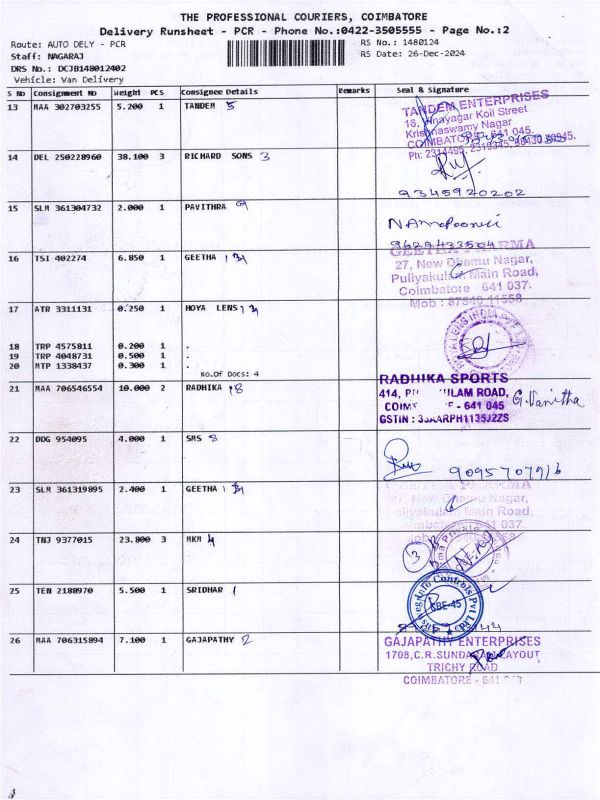 THE PROFESSIONAL COURIERS, COIMBATORE
Delivery Runsheet - PCR - Phone No.:0422-3505555 - Page No.:2
Route: AUTO DELY - PCR
RS No.: 1480124
Staff: NAGARAJ
RS Date: 26-Dec-2024
DRS No.: DCJB148012402
Vehicle: Van Delivery
S No Consignment No Weight PCS Consignee Details Remarks Seal & Signature
13 MAA 302703255 5.200 1 TANDEM 5
TANDEM ENTERPRISES
16, Vinayagar Koil Street
Krishnaswamy Nagar
COIMBATORE - 641 045.
14 DEL 250228960 38.100 3 RICHARD SONS 3
9345920202
15 SLM 361304732 2.000 1 PAVITHRA 9
9629433504
16 TSI 402274 6.850 1 GEETHA 13
GEETHA PHARMA
27, New Dhamu Nagar,
Puliyakulam Main Road,
Coimbatore 641 037.
Mob : 87540 11558
17 ATR 3311131 0.250 1 HOYA LENS 12
18 TRP 4575811 0.200 1 .
19 TRP 4048731 0.500 1 .
20 MTP 1338437 0.300 1 .
No.Of Docs: 4
21 MAA 706546554 10.000 2 RADHIKA 18
RADHIKA SPORTS
414, ULAM ROAD,
COIM - 641 045
GSTIN : 33AARPH1135J2ZS
G. Vanitha
22 DDG 954095 4.000 1 SMS 8
23 SLM 361319895 2.400 1 GEETHA 13
GEETHA PHARMA
New Dhamu Nagar,
Main Road,
037.
24 TNJ 9377015 23.800 3 MKM 4
3
25 TEN 2188970 5.500 1 SRIDHAR 1
Controls Pvt Ltd
CBE-45
26 MAA 706315894 7.100 1 GAJAPATHY 2
GAJAPATHY ENTERPRISES
1708, C.R. SUNDARAM LAYOUT
TRICHY ROAD
COIMBATORE - 641